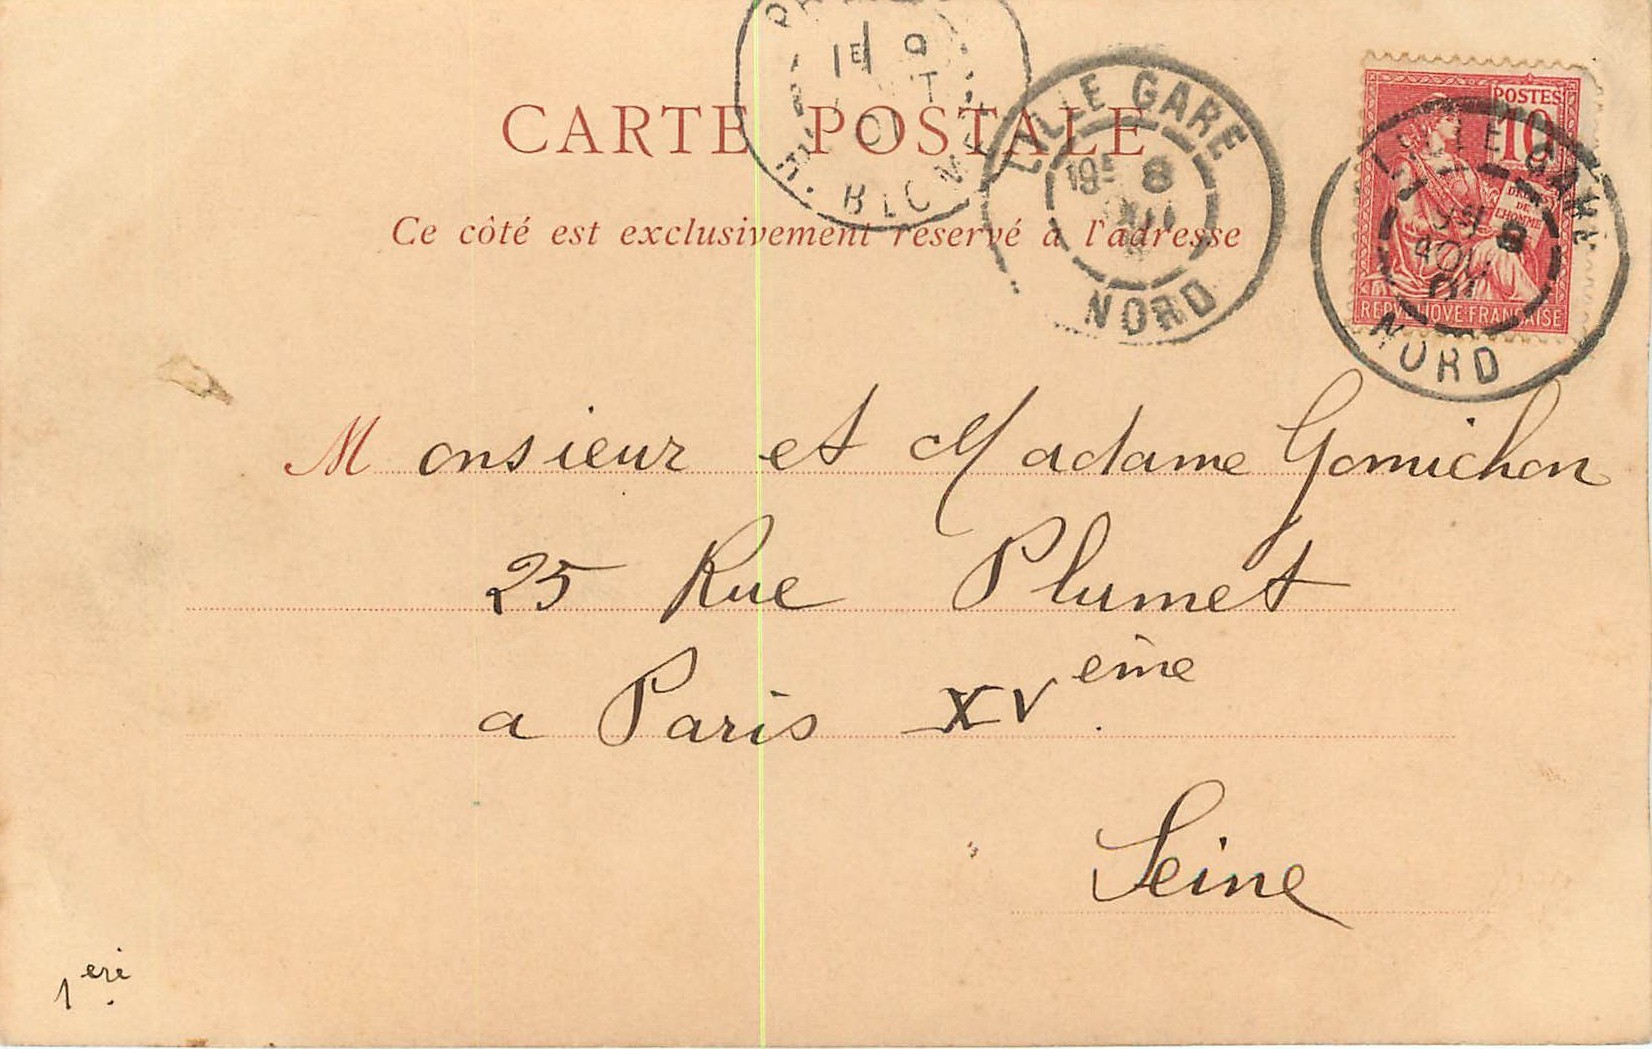 CARTE POSTALE
Ce côté est exclusivement réservé à l'adresse
1E 9
01
R. BLOMET
LILLE GARE
19E 8
NORD
POSTES
10
DROITS
DE
L'HOMME
REPVBLIQVE FRANÇAISE
LILLE GARE
8
AOUT
01
NORD
Monsieur et Madame Gomichon
25 Rue Plumet
a Paris XVème
Seine
1ere